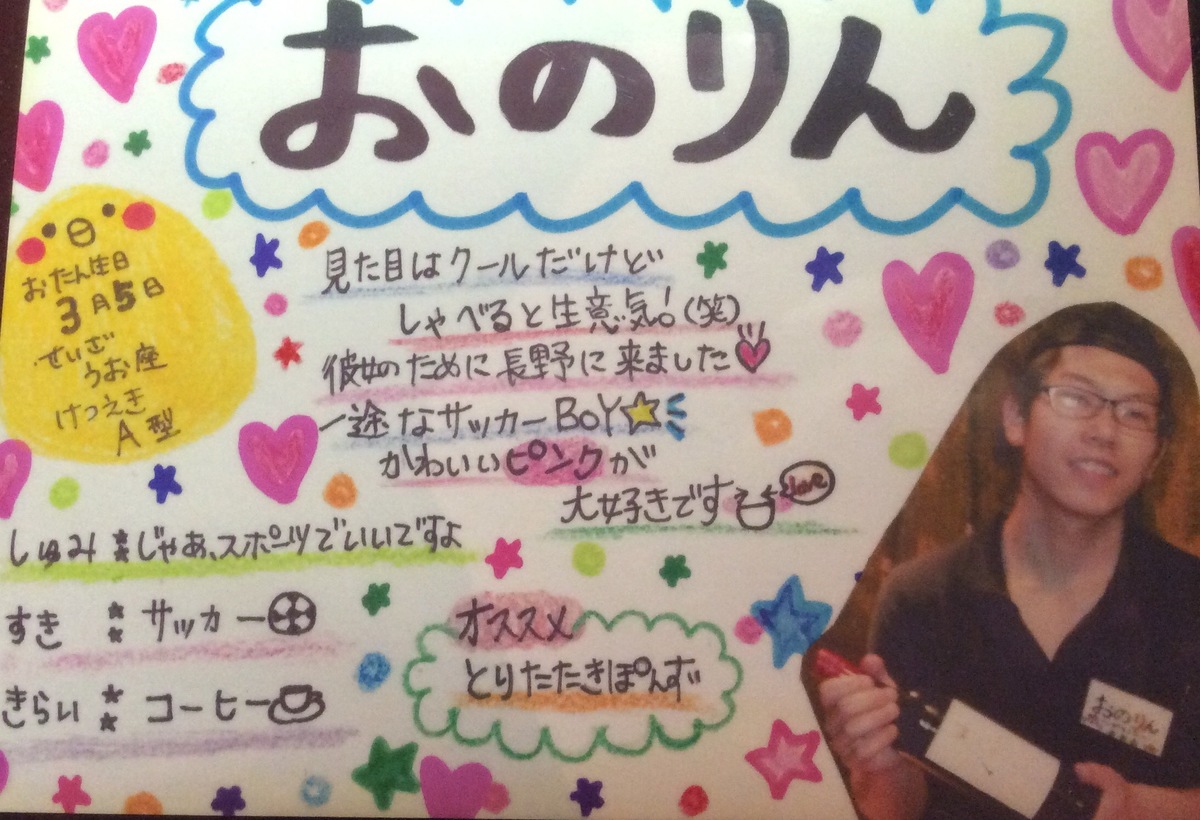 おのりん
おたん生日
3月5日
せいざ
うお座
けつえき
A型
見た目はクールだけど
しゃべると生意気!(笑)
彼女のために長野に来ました
一途なサッカーBoY
かわいいピンクが
大好きです
love
しゅみ:じゃあ、スポーツでいいですよ
すき:サッカー
きらい:コーヒー
オススメ
とりたたきぽんず
おのりん